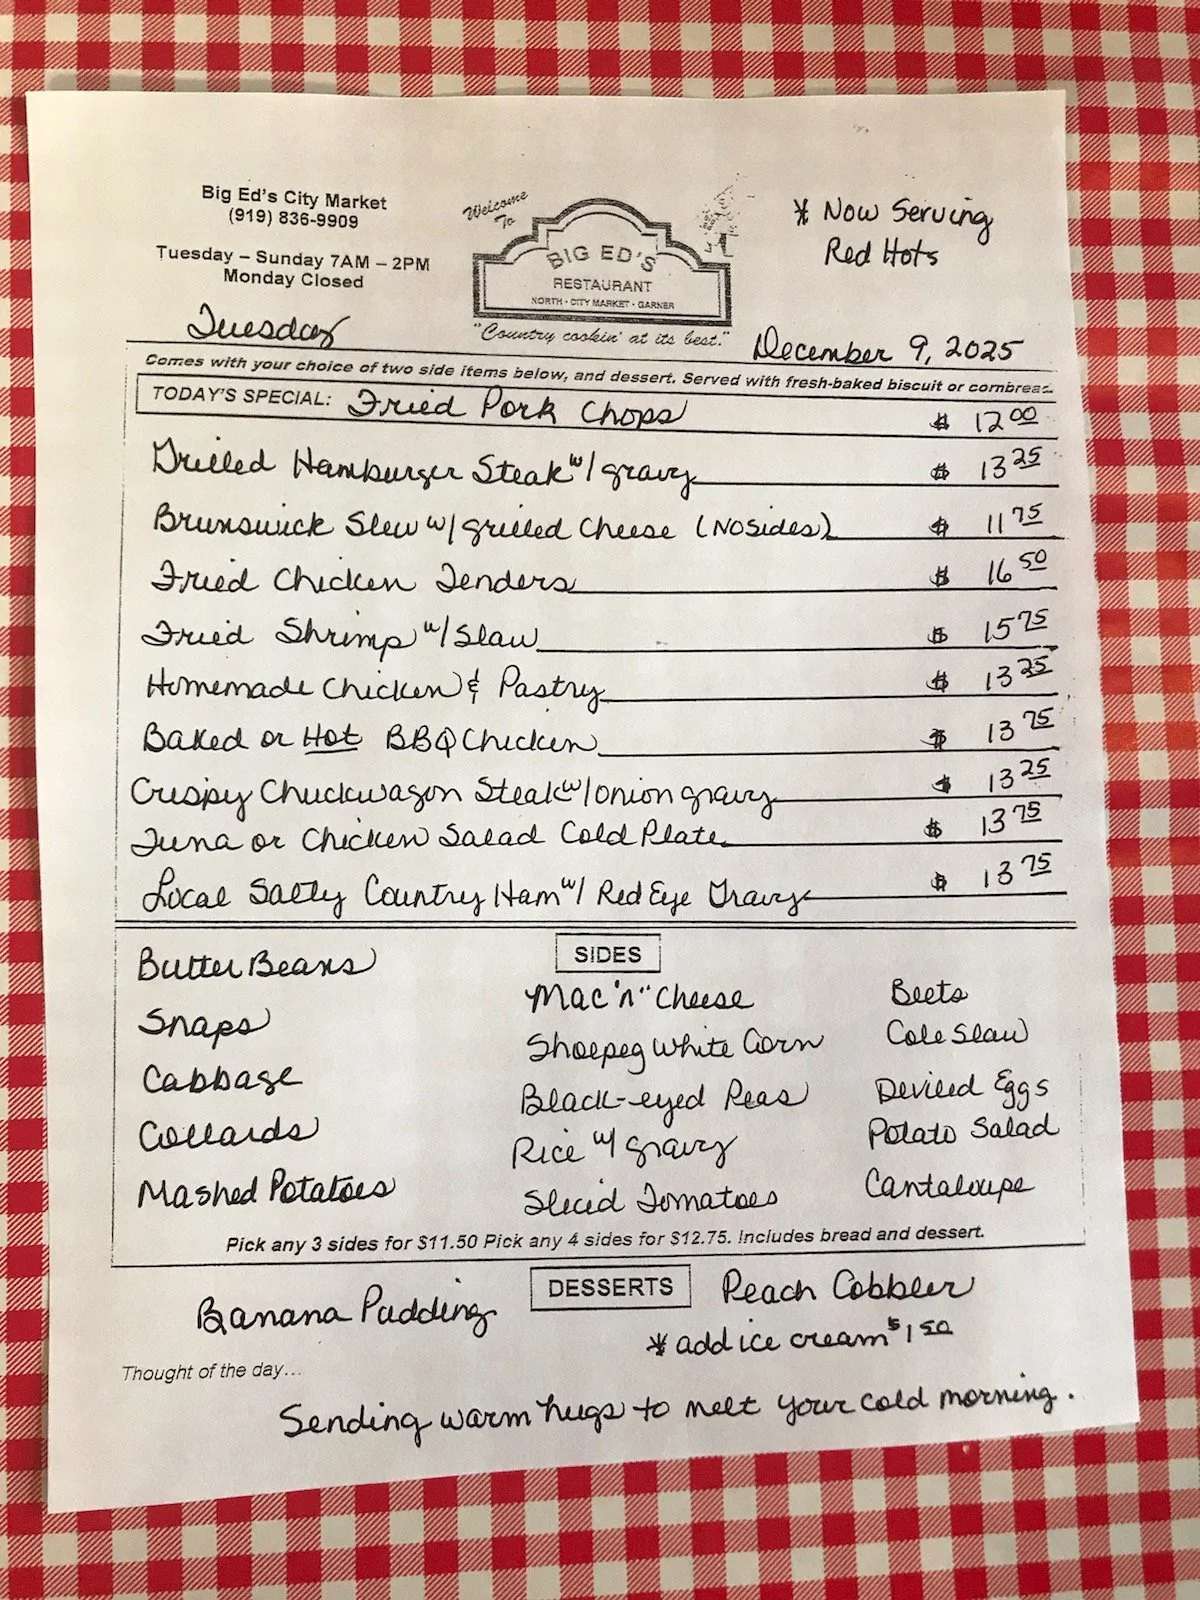 Big Ed's City Market
(919) 836-9909
Tuesday – Sunday 7AM – 2PM
Monday Closed
Welcome
To
BIG ED'S
RESTAURANT
NORTH · CITY MARKET · GARNER
"Country cookin' at its best."
* Now Serving
Red Hots
Tuesday
December 9, 2025
Comes with your choice of two side items below, and dessert. Served with fresh-baked biscuit or cornbread.
TODAY'S SPECIAL: Fried Pork Chops $ 12.00
Grilled Hamburger Steak w/ gravy $ 13.25
Brunswick Stew w/ grilled Cheese (No Sides) $ 11.75
Fried Chicken Tenders $ 16.50
Fried Shrimp w/ Slaw $ 15.75
Homemade Chicken & Pastry $ 13.25
Baked or Hot BBQ Chicken $ 13.75
Crispy Chuckwagon Steak w/ onion gravy $ 13.25
Tuna or Chicken Salad Cold Plate $ 13.75
Local Salty Country Ham w/ Red Eye Gravy $ 13.75
SIDES
Butter Beans
Snaps
Cabbage
Collards
Mashed Potatoes
Mac 'n" Cheese
Shoepeg White Corn
Black-eyed Peas
Rice w/ gravy
Sliced Tomatoes
Beets
Cole Slaw
Deviled Eggs
Potato Salad
Cantaloupe
Pick any 3 sides for $11.50 Pick any 4 sides for $12.75. Includes bread and dessert.
DESSERTS
Banana Pudding
Peach Cobbler
* add ice cream $1.50
Thought of the day...
Sending warm hugs to melt your cold morning.